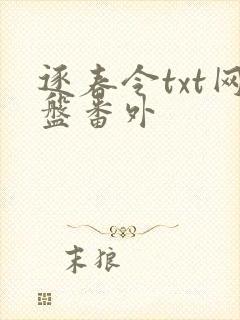 逐春令txt网
盘番外
末狼